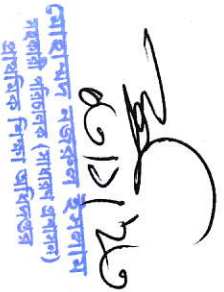 ৩০।১।২৩
মোহাম্মদ নজরুল ইসলাম
সহকারী পরিচালক (সাধারণ প্রশাসন)
প্রাথমিক শিক্ষা অধিদপ্তর